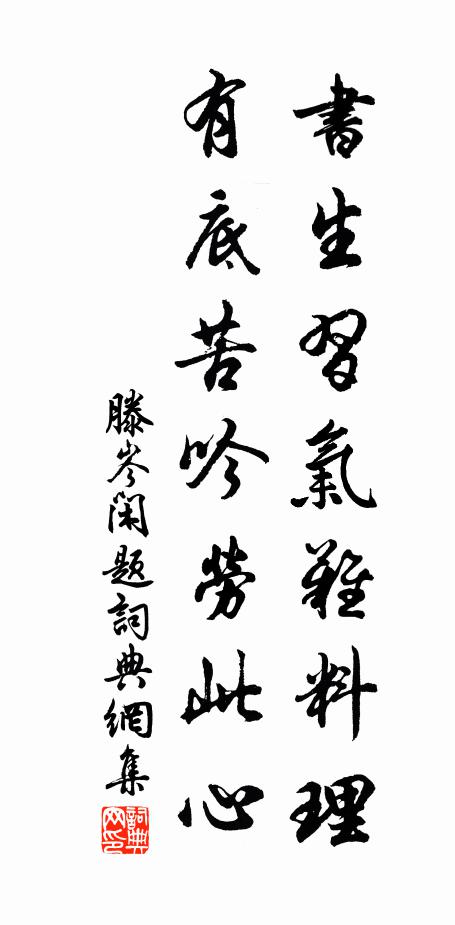 書生習氣難料理
有底苦吟勞此心
滕岑閑題詞典網集
詞典网印